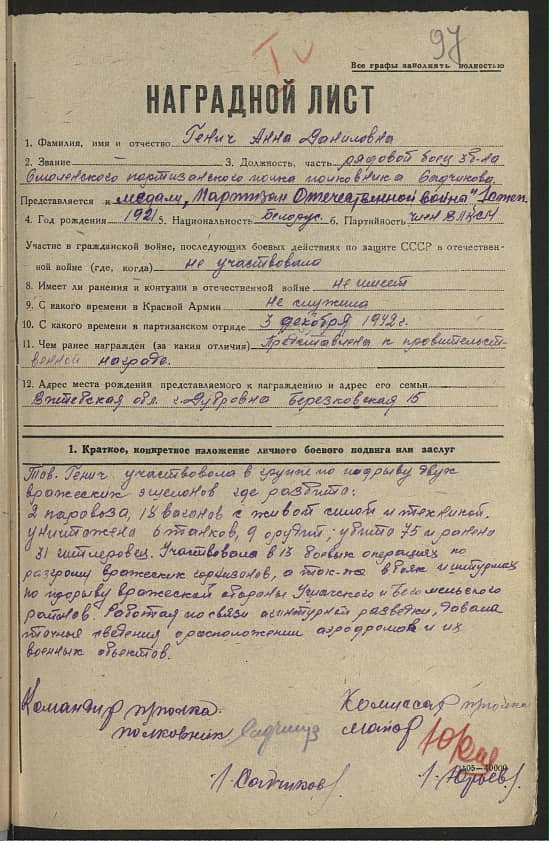 97
Все графы заполнять полностью
НАГРАДНОЙ ЛИСТ
1. Фамилия, имя и отчество Генич Анна Даниловна
2. Звание 3. Должность, часть рядовой боец
Смоленского партизанского полка полковника Садчикова.
Представляется к медали „Партизан Отечественной война" 1 степ.
4. Год рождения 1921 5. Национальность белорус 6. Партийность член ВЛКСМ
Участие в гражданской войне, последующих боевых действиях по защите СССР в отечествен-
ной войне (где, когда) не участвовала
8. Имеет ли ранения и контузии в отечественной войне не имеет
9. С какого времени в Красной Армии не служила
10. С какого времени в партизанском отряде 3 декабря 1942 г.
11. Чем ранее награжден (за какия отличия) Представлена к правительст-
венной награде.
12. Адрес места рождения представляемого к награждению и адрес его семьи
Витебская обл. г. Дубровна Березковская 15
1. Краткое, конкретное изложение личного боевого подвига или заслуг
Тов. Генич участвовала в группе по подрыву двух
вражеских эшелонов где разбито:
2 паровоза, 18 вагонов с живой силой и техникой.
уничтожено 6 танков, 9 орудий; убито 75 и ранено
31 гитлеровец. Участвовала в 13 боевых операциях по
разгрому вражеских гарнизонов, а так-же в боях и штурмах
по прорыву вражеской обороны Ушачского и Бегомльского
районов. Работая по связи агентурной разведки, давала
точные сведения о расположении аэродромов и их
военных объектов.
Командир полка
полковник
/Садчиков/
Комиссар полка
майор
/Юрьев/
1505—40000